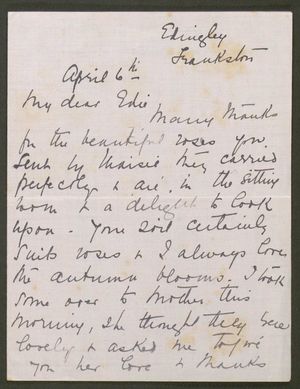 Edingley
Frankston
April 6th
My dear Edie
Many thanks
for the beautiful roses you
sent by Maisie they carried
perfectly & are in the sitting
room & a delight to look
upon - Your soil certainly
suits roses & I always love
the autumn blooms. I took
some over to Mother this
morning, she thought they were
lovely & asked me to give
you her love & thanks